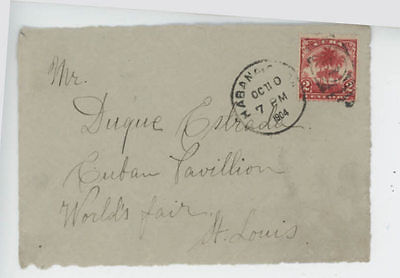 Mr.
Duque Estrada
Cuban Pavillion
World's fair
St. Louis.
HABANA
OCT 10
7 PM
1904
CUBA
2 2